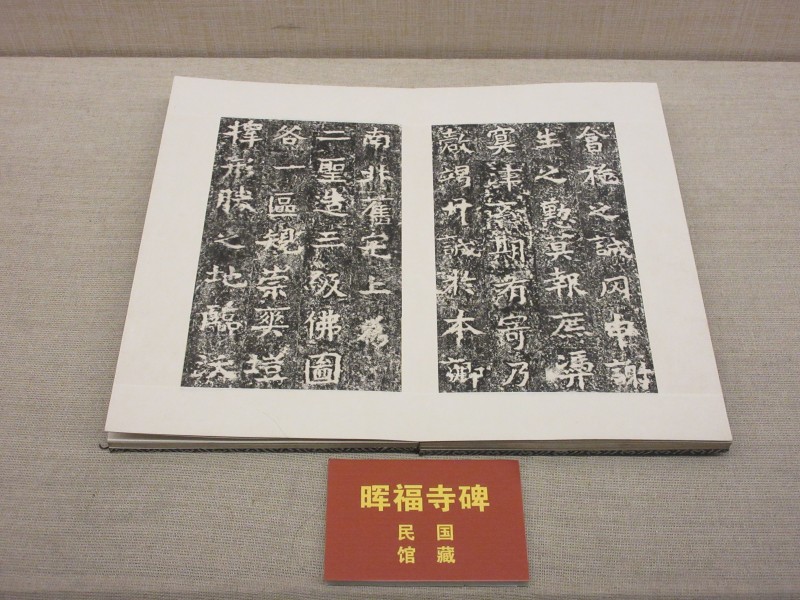 會極之誠罔申謝
生之勳冥報庶憑
冥津齋期有寄乃
罄竭丹誠於本鄉
南北舊宅上為
二聖造三級佛圖
各一區規崇爽塏
擇形勝之地臨沃
晖福寺碑
民国
馆藏